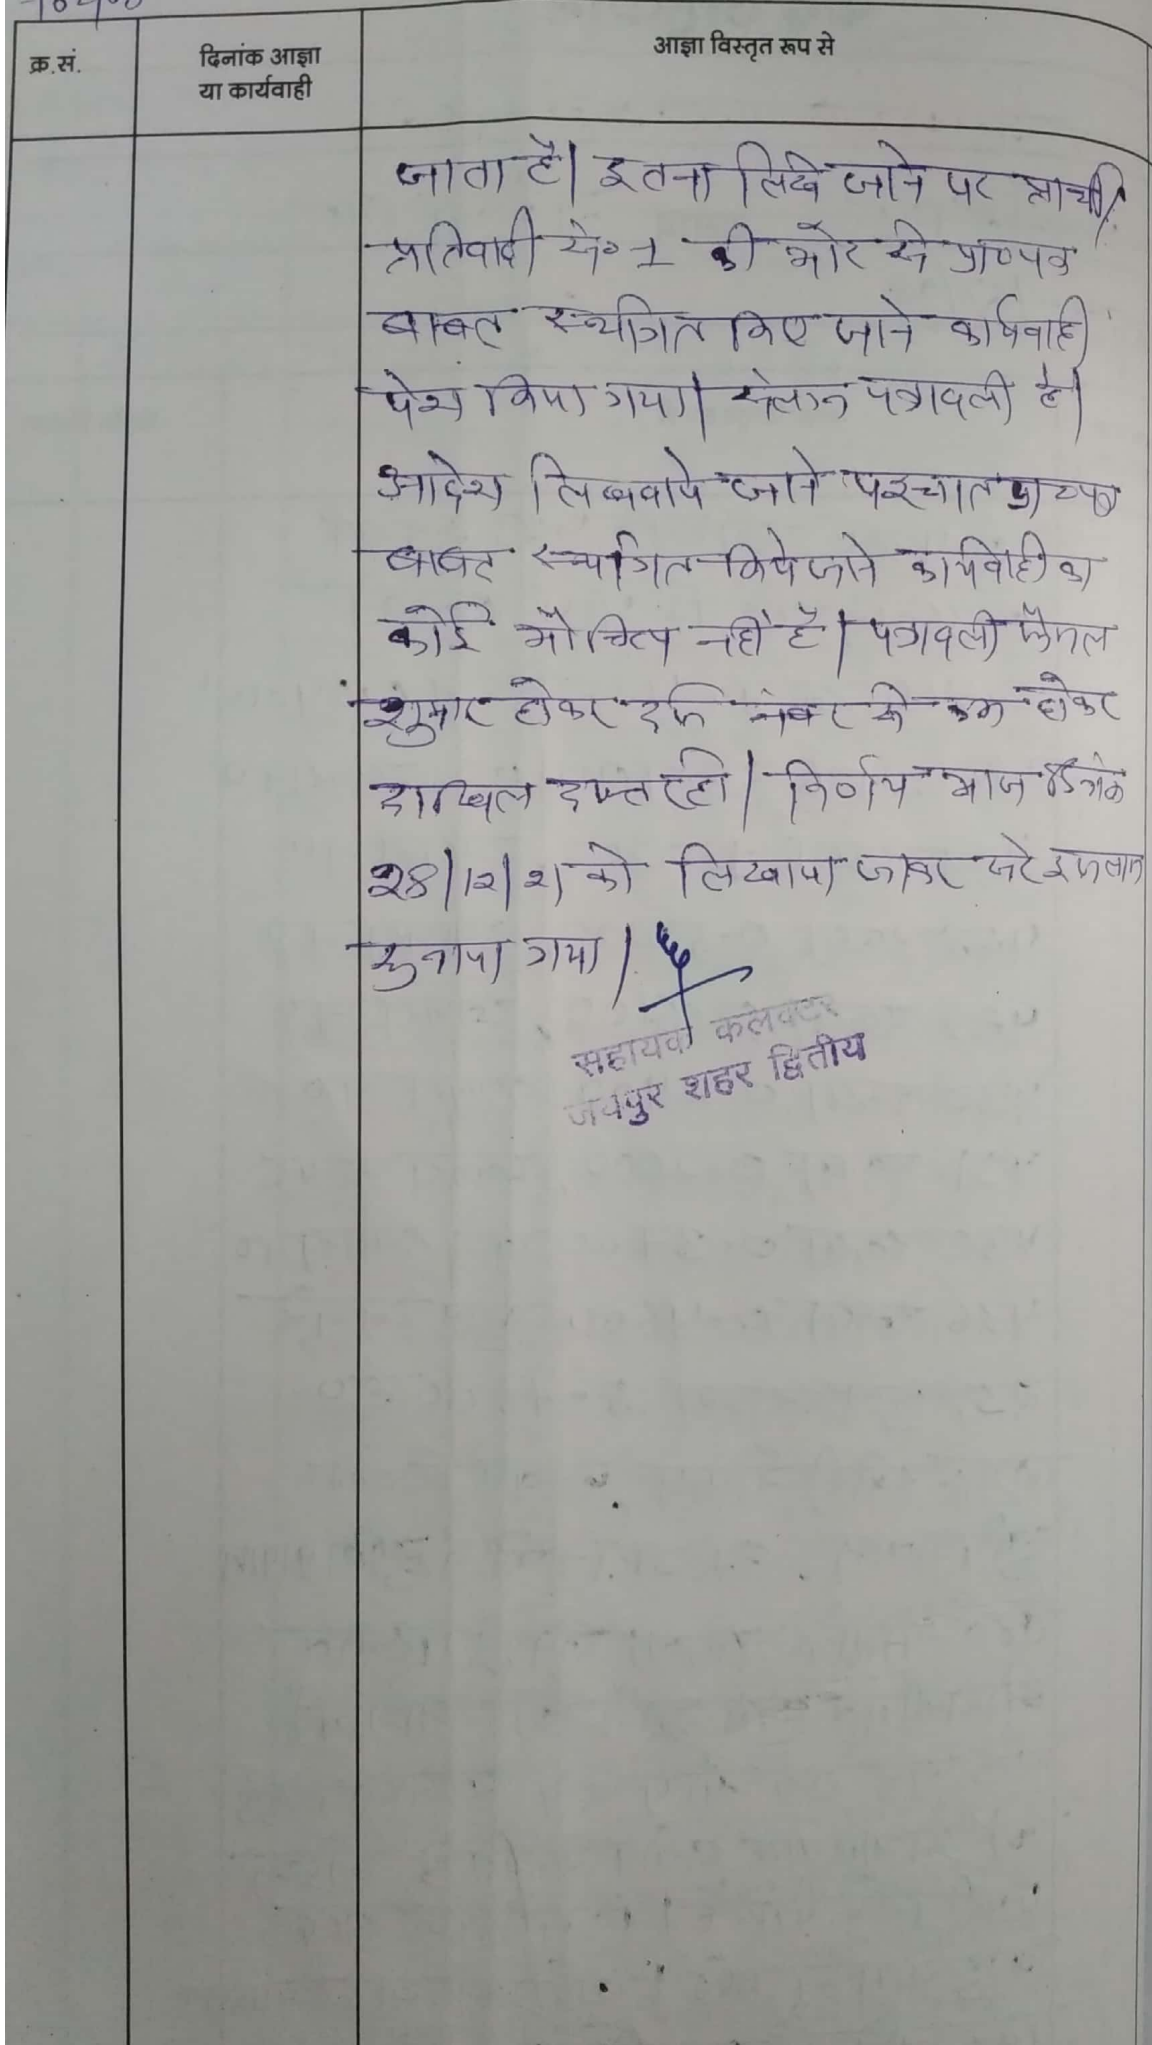 क्र.सं.
दिनांक आज्ञा
या कार्यवाही
आज्ञा विस्तृत रूप से
जाता है। इतना लिखे जाने पर प्रार्थी/
प्रतिवादी सं० 1 की ओर से प्रा०पत्र
बाबत स्थगित किए जाने कार्यवाही
पेश किया गया। संलग्न पत्रावली है।
आदेश लिखवाये जाने पश्चात प्रा०पत्र
बाबत स्थगित किये जाने कार्यवाही का
कोई औचित्य नहीं है। पत्रावली फैसल
शुमार होकर दर्ज नंबर से कम होकर
दाखिल दफ्तर हो। निर्णय आज दिनांक
28/12/21 को लिखाया जाकर सरे इजलास
सुनाया गया।
सहायक कलेक्टर
जयपुर शहर द्वितीय